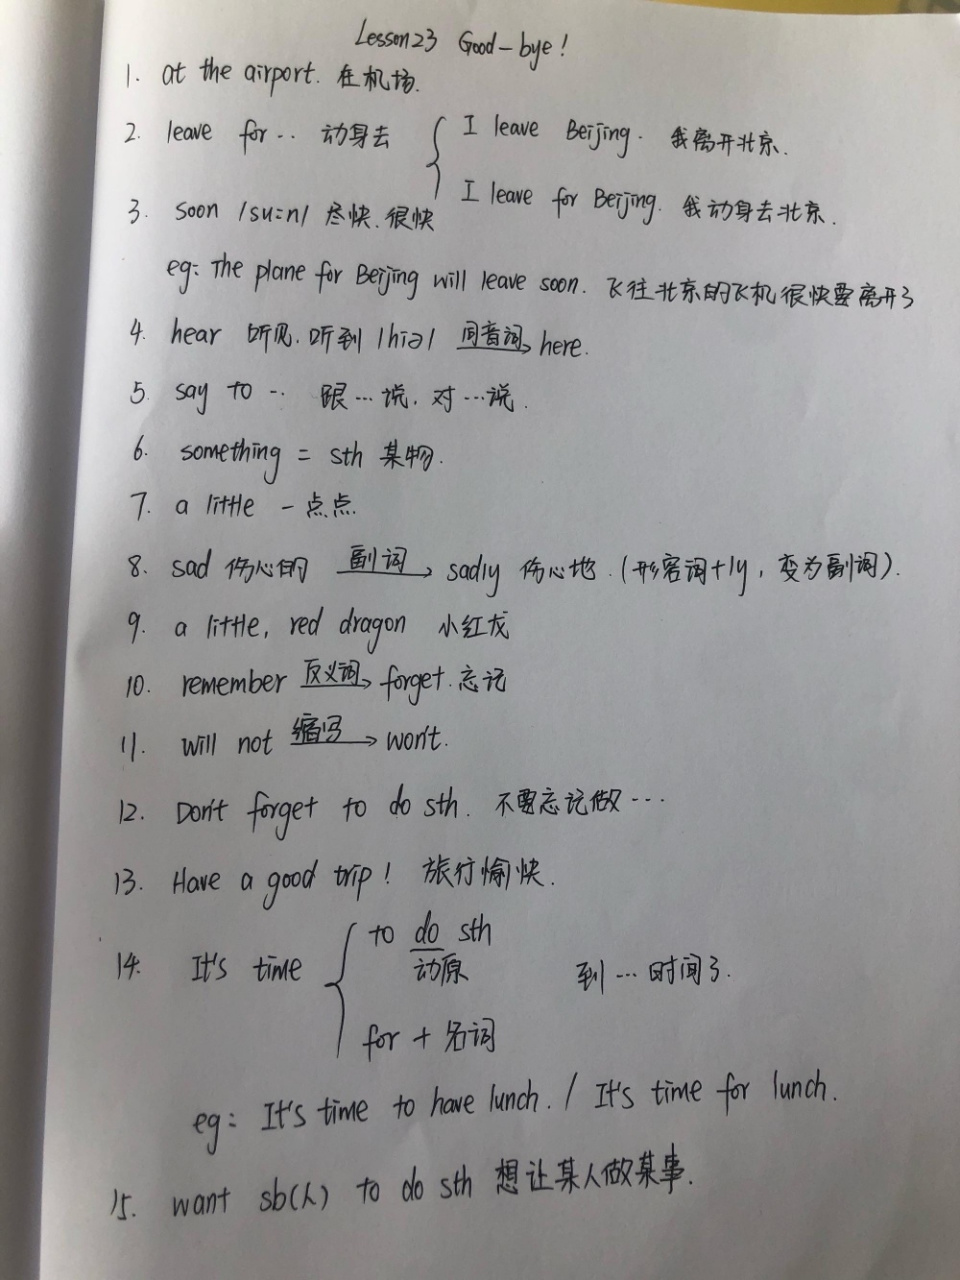 Lesson23 Good-bye!
1. at the airport. 在机场.
2. leave for.. 动身去 { I leave Beijing. 我离开北京.
I leave for Beijing. 我动身去北京.
3. soon /su:n/ 尽快.很快
eg: The plane for Beijing will leave soon. 飞往北京的飞机很快要离开了
4. hear 听见.听到 /hiə/ 同音词→ here.
5. say to … 跟…说. 对…说.
6. something = sth 某物.
7. a little 一点点.
8. sad 伤心的 副词→ sadly 伤心地.(形容词+ly, 变为副词).
9. a little, red dragon 小红龙
10. remember 反义词→ forget.忘记
11. will not 缩写→ won't.
12. Don't forget to do sth. 不要忘记做…
13. Have a good trip! 旅行愉快.
14. It's time { to do sth 到…时间了.
动原
for + 名词
eg: It's time to have lunch. / It's time for lunch.
15. want sb(人) to do sth 想让某人做某事.